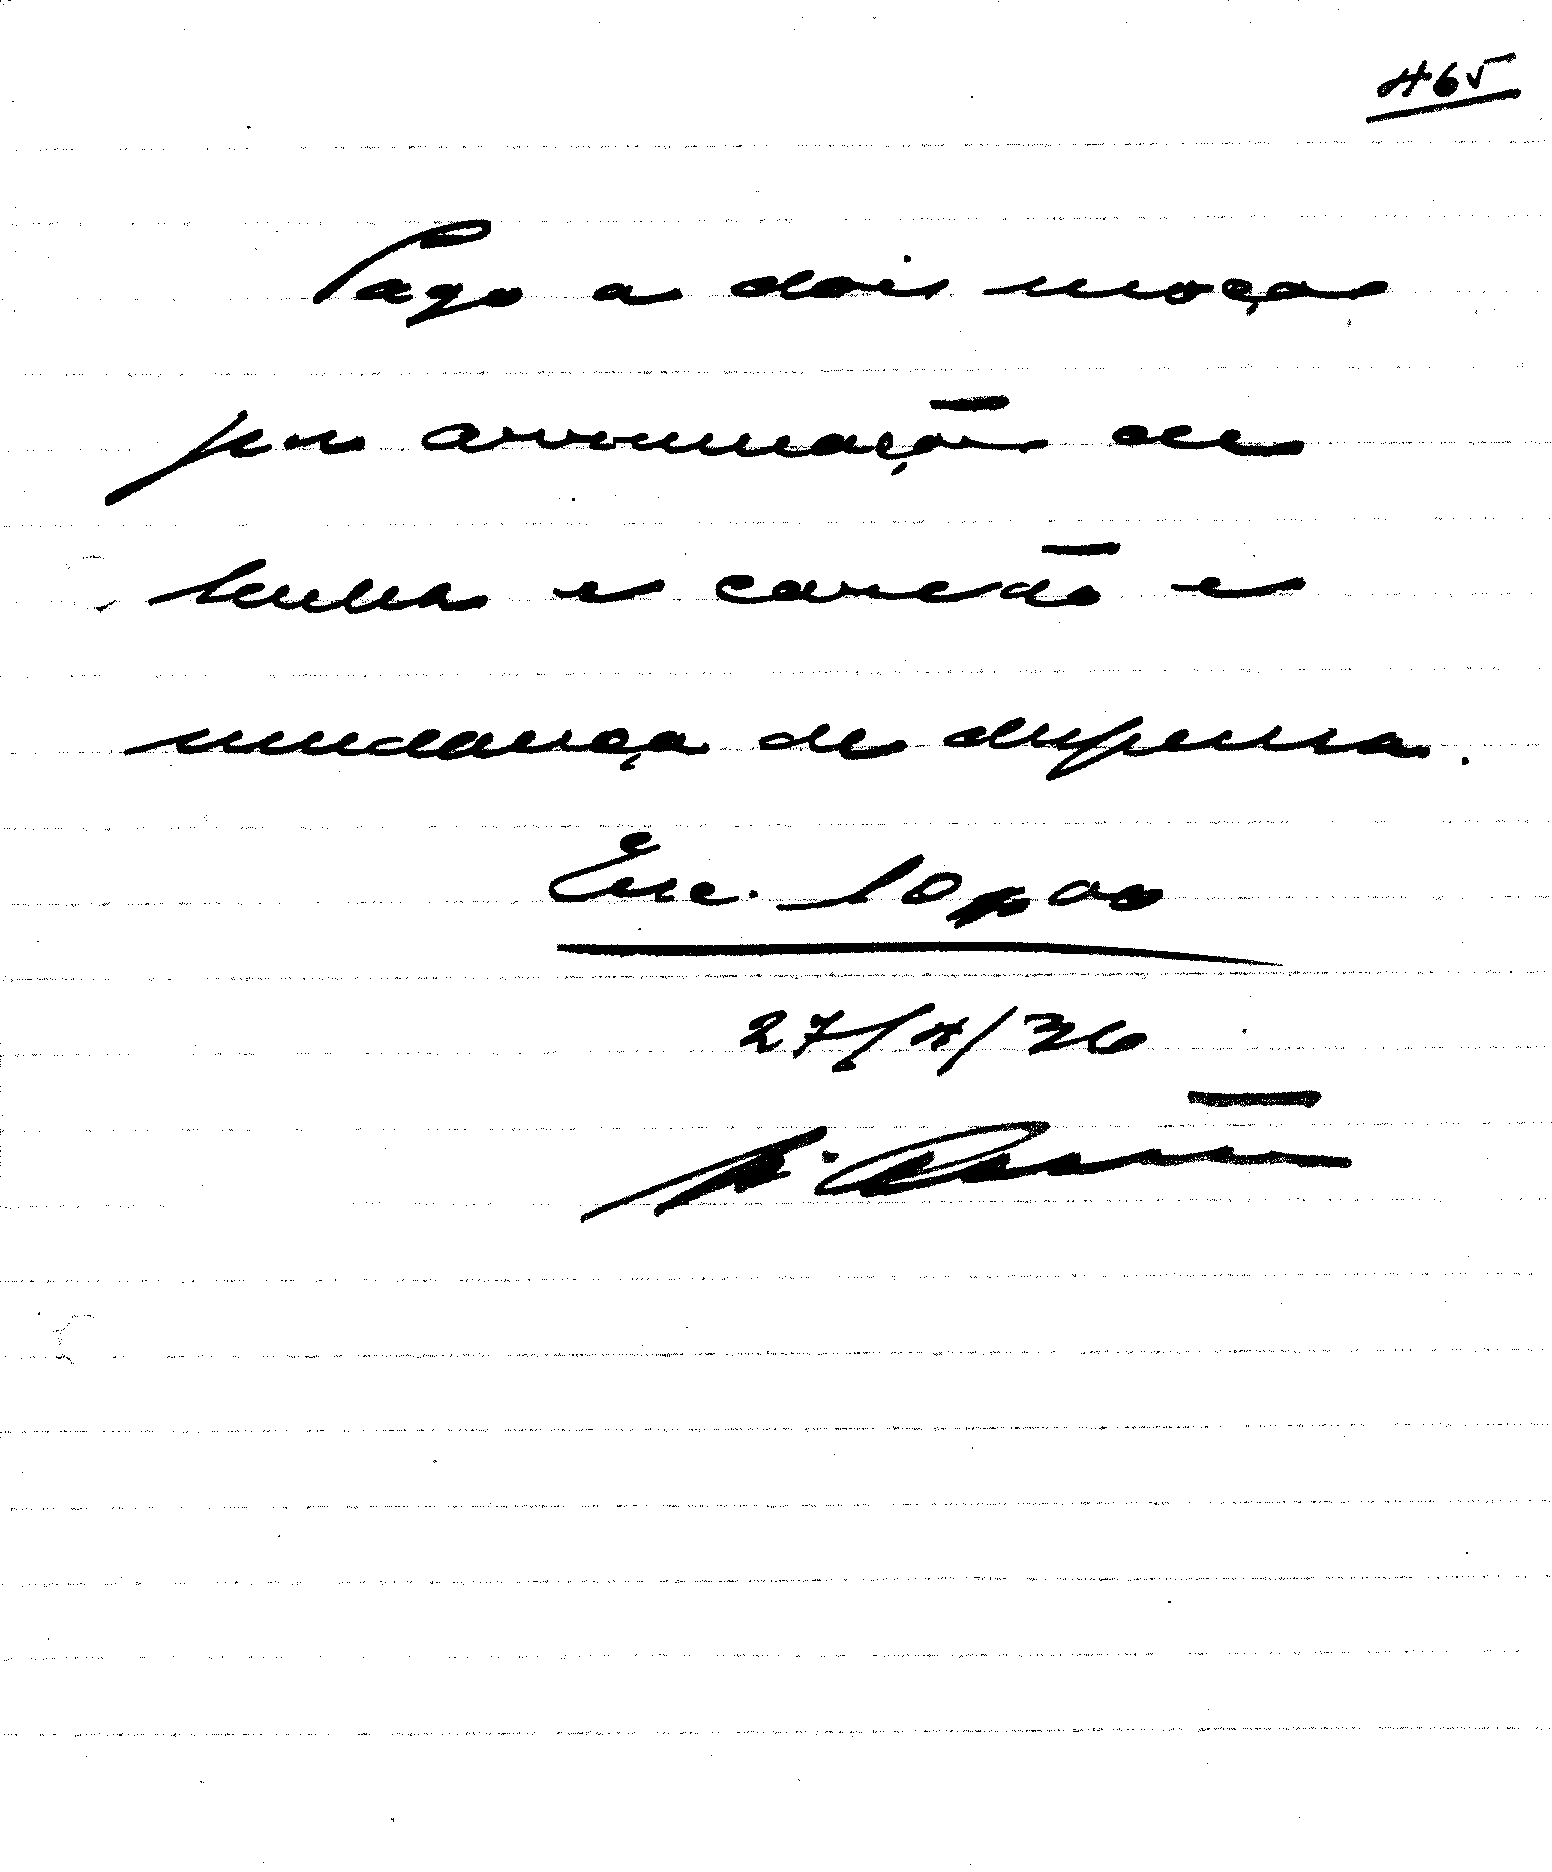 465
Pago a dois moços
por arrumação de
lenha e carvão e
mudança de despensa.
Esc. 10$00
27/4/36